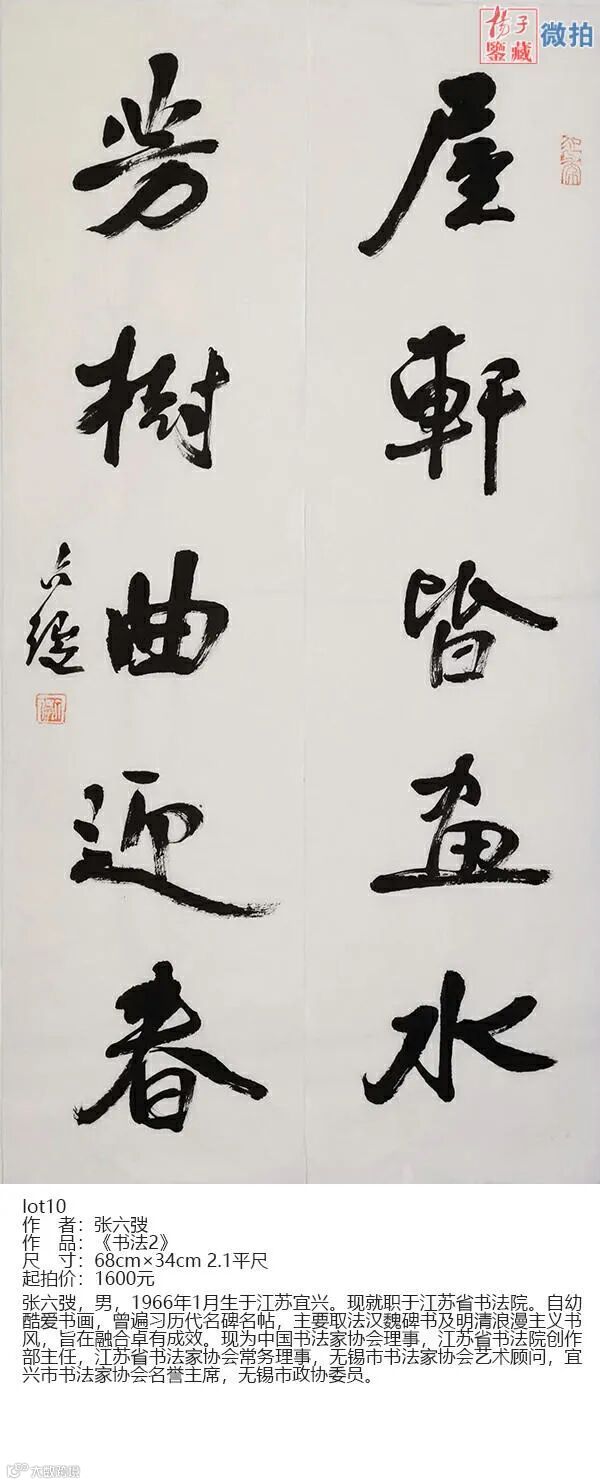 揚子
鑒藏
微拍
屋軒皆畫水
芳樹曲迎春
六弢
lot10
作 者：张六弢
作 品：《书法2》
尺 寸：68cm×34cm 2.1平尺
起拍价：1600元
张六弢，男，1966年1月生于江苏宜兴。现就职于江苏省书法院。自幼
酷爱书画，曾遍习历代名碑名帖，主要取法汉魏碑书及明清浪漫主义书
风，旨在融合卓有成效。现为中国书法家协会理事，江苏省书法院创作
部主任，江苏省书法家协会常务理事，无锡市书法家协会艺术顾问，宜
兴市书法家协会名誉主席，无锡市政协委员。
大数跨境